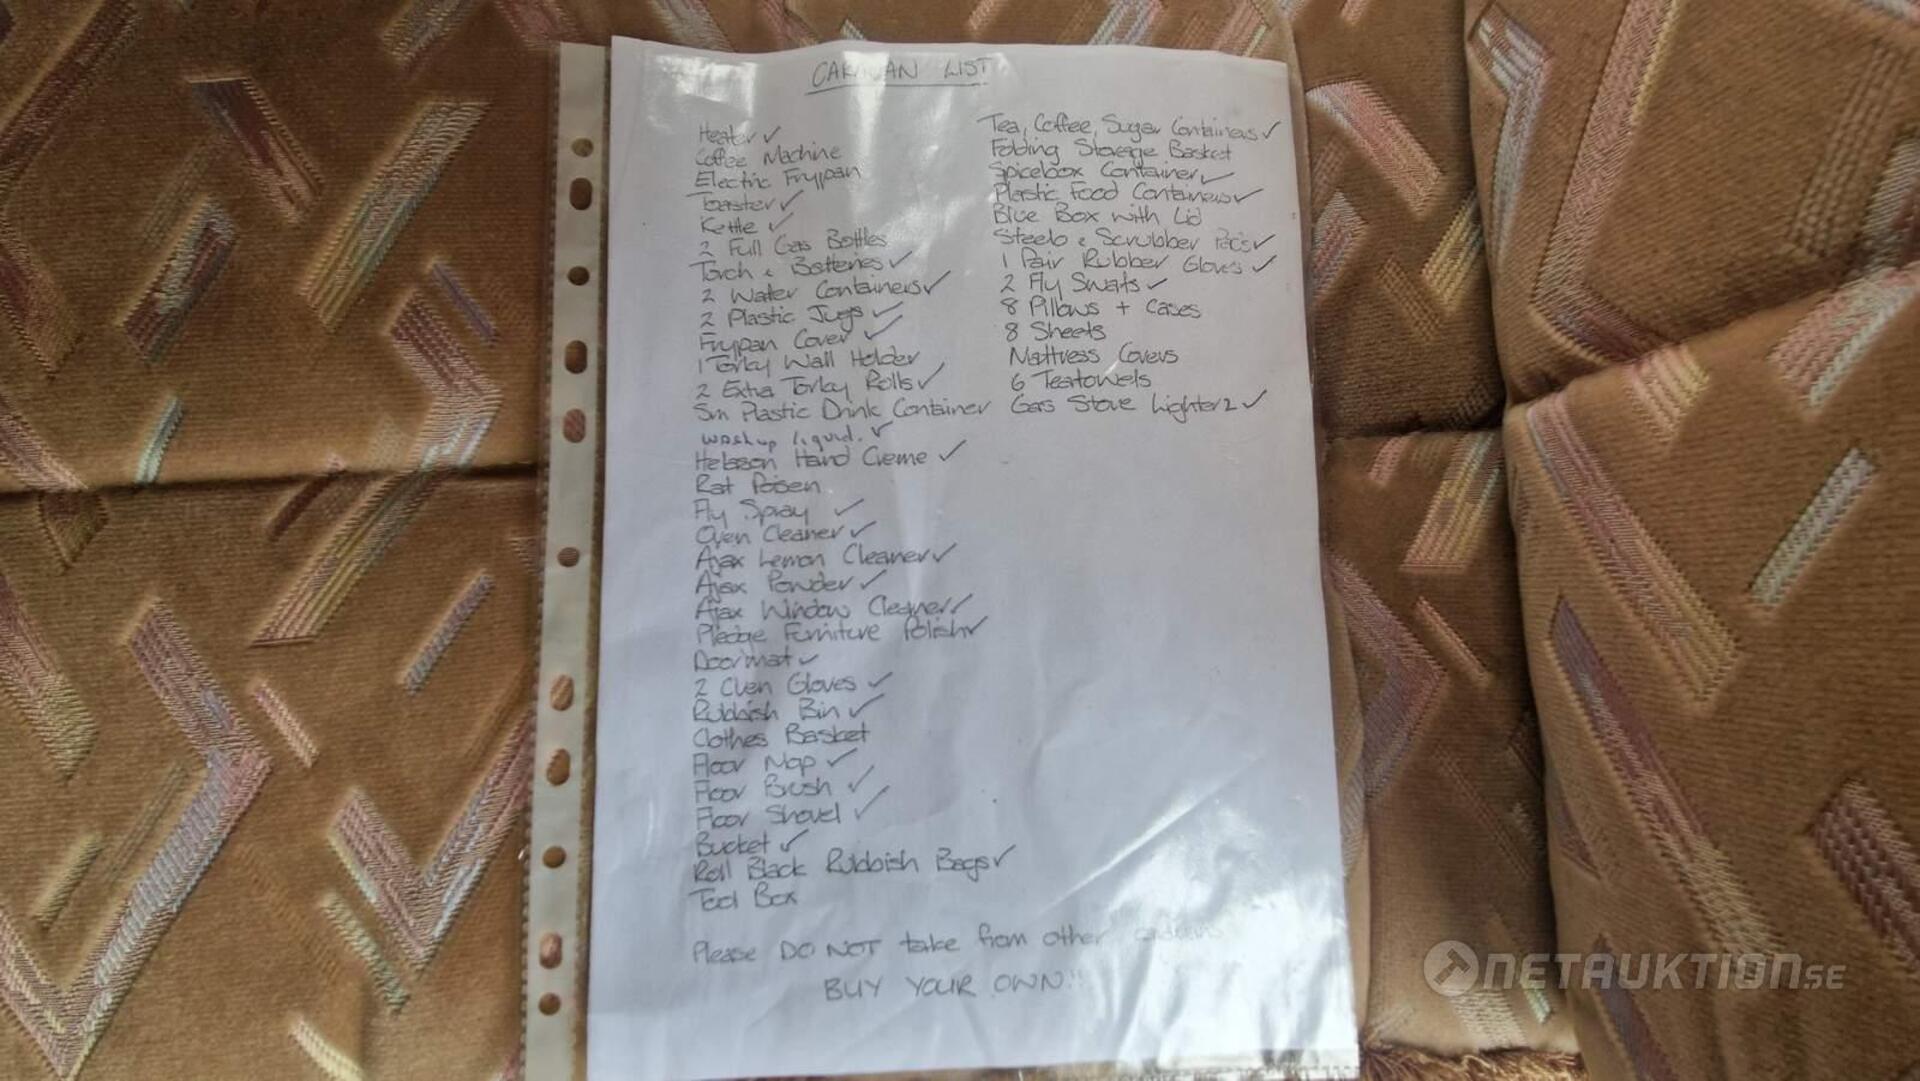 CARAVAN LIST
Heater ✓
Coffee Machine
Electric Frypan
Toaster ✓
Kettle ✓
2 Full Gas Bottles
Torch & Batteries ✓
2 Water Containers ✓
2 Plastic Jugs ✓
Frypan Cover ✓
1 Torky Wall Holder
2 Extra Torky Rolls ✓
Sm Plastic Drink Container
washup liquid. ✓
Helosan Hand Creme ✓
Rat Poisen
Fly Spray ✓
Oven Cleaner ✓
Ajax Lemon Cleaner ✓
Ajax Powder ✓
Ajax Window Cleaner ✓
Pledge Furniture Polish ✓
Doormat ✓
2 Oven Gloves ✓
Rubbish Bin ✓
Clothes Basket
Floor Mop ✓
Floor Brush ✓
Floor Shovel ✓
Bucket ✓
Roll Black Rubbish Bags ✓
Tool Box
Tea, Coffee, Sugar Containers ✓
Folding Storage Basket
Spicebox Container ✓
Plastic Food Containers ✓
Blue Box with Lid
Steelo & Scrubber Pac's ✓
1 Pair Rubber Gloves ✓
2 Fly Swats ✓
8 Pillows + Cases
8 Sheets
Mattress Covers
6 Teatowels
Gas Stove Lighter 2 ✓
Please DO NOT take from other
BUY YOUR OWN!!
NETAUKTION.SE